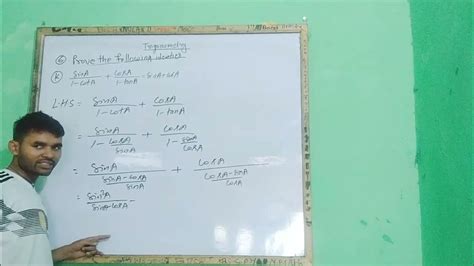 Trigonometry
⑥ Prove the following identities
Ⓚ sinA/(1-cotA) + cosA/(1-tanA) = sinA+cosA
LHS = sinA/(1-cotA) + cosA/(1-tanA)
= sinA/(1-cosA/sinA) + cosA/(1-sinA/cosA)
= sinA/((sinA-cosA)/sinA) + cosA/((cosA-sinA)/cosA)
= sin²A/(sinA-cosA)